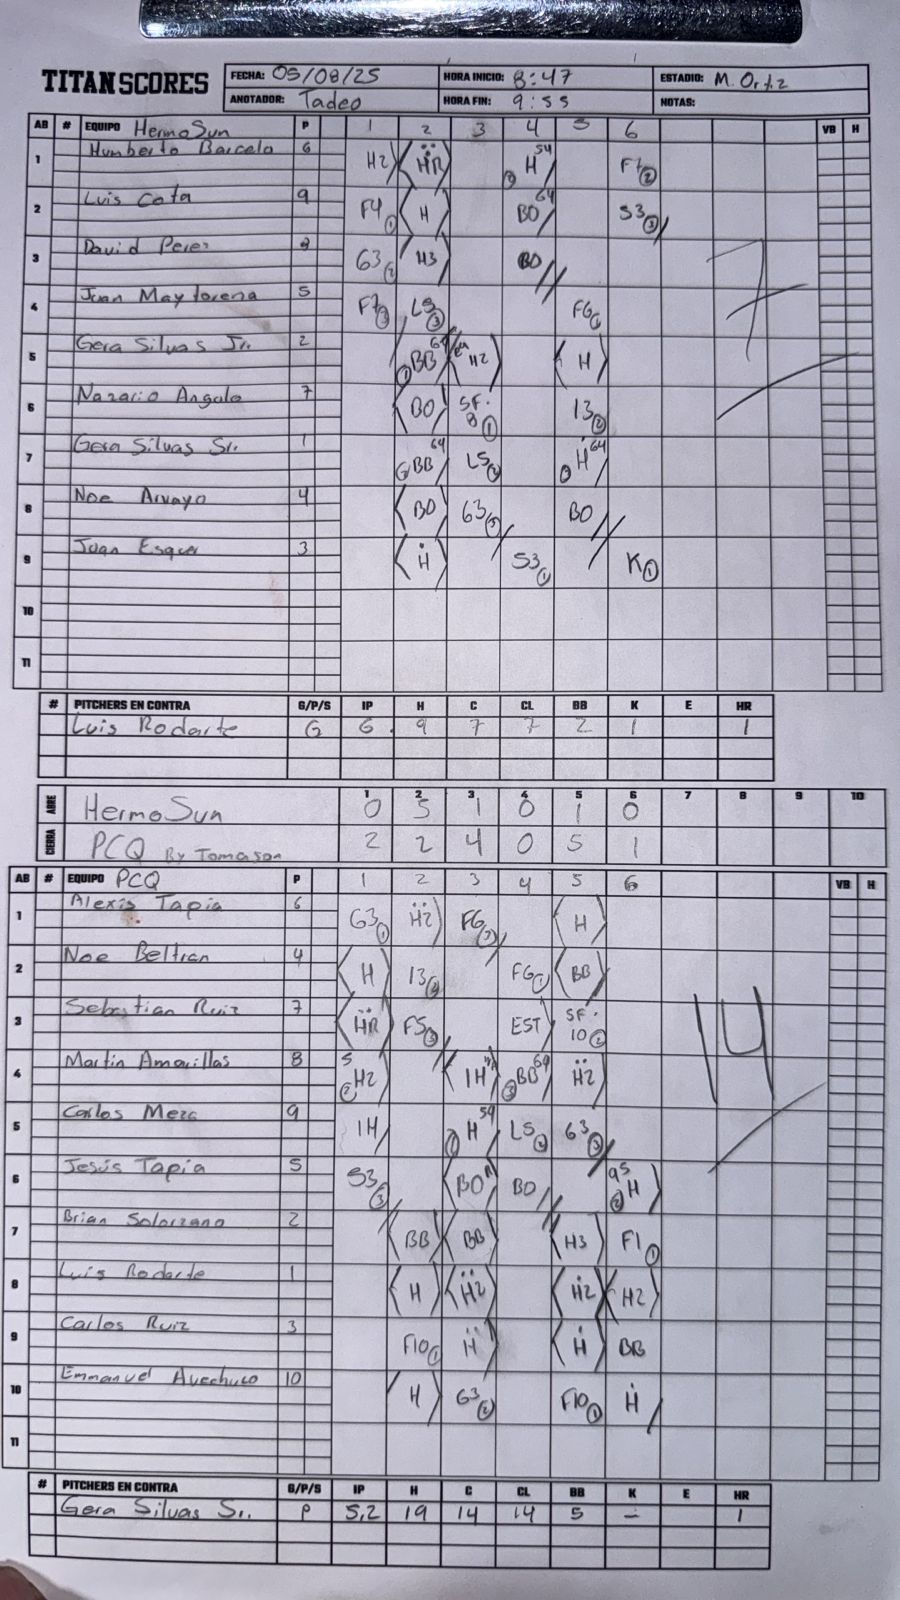 TITAN SCORES
FECHA: 05/08/25 HORA INICIO: 8:47 ESTADIO: M. Ortiz
ANOTADOR: Tadeo HORA FIN: 9:55 NOTAS:
AB # EQUIPO HermoSun P 1 2 3 4 5 6 VB H
1 Humberto Barcelo 6 H2 HR H 54 F7 2
2 Luis Cota 9 F4 1 H BO 64 53 3
3 David Perez 63 2 H3 BO
4 Juan Maytorena 5 F7 3 L5 3 F6 1
5 Gera Silvas Jr. 2 1 BB 64 H2 H
6 Nazario Angulo 7 BO SF. 8 1 13 2
7 Gera Silvas Sr. 1 BB 64 L5 2 H 64
8 Noe Arvayo 4 BO 63 3 BO
9 Juan Esquer 3 H 53 1 K 1
10
11
# PITCHERS EN CONTRA G/P/S IP H C CL BB K E HR
Luis Rodarte G 6 9 7 7 2 1 1
7
ABRE 1 2 3 4 5 6 7 8 9 10
HermoSun 0 5 1 0 1 0
CIERRA PCQ By Tomason 2 2 4 0 5 1
AB # EQUIPO PCQ P 1 2 3 4 5 6 VB H
1 Alexis Tapia 6 63 1 H2 F6 3 H
2 Noe Beltran 4 H 13 2 F6 1 BB
3 Sebastian Ruiz 7 HR F5 3 EST SF. 10 2
4 Martin Amarillas 8 5 2 H2 1H BB 64 3 H2
5 Carlos Meza 9 1H H 54 L5 2 63 3
6 Jesús Tapia 5 53 3 BO BO 95 2 H
7 Brian Solorzano 2 BB BB H3 F1 1
8 Luis Rodarte 1 H H2 H2 H2
9 Carlos Ruiz 3 F10 1 H H BB
10 Emmanuel Avechuco 10 H 63 2 F10 1 H
11
14
# PITCHERS EN CONTRA G/P/S IP H C CL BB K E HR
Gera Silvas Sr. P 5.2 19 14 14 5 – 1